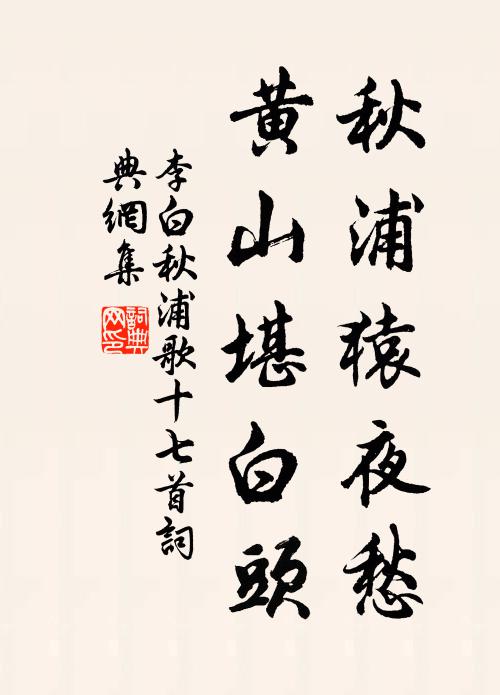 秋浦猿夜愁
黄山堪白頭
李白秋浦歌十七首詞
典網集
詞典
网印